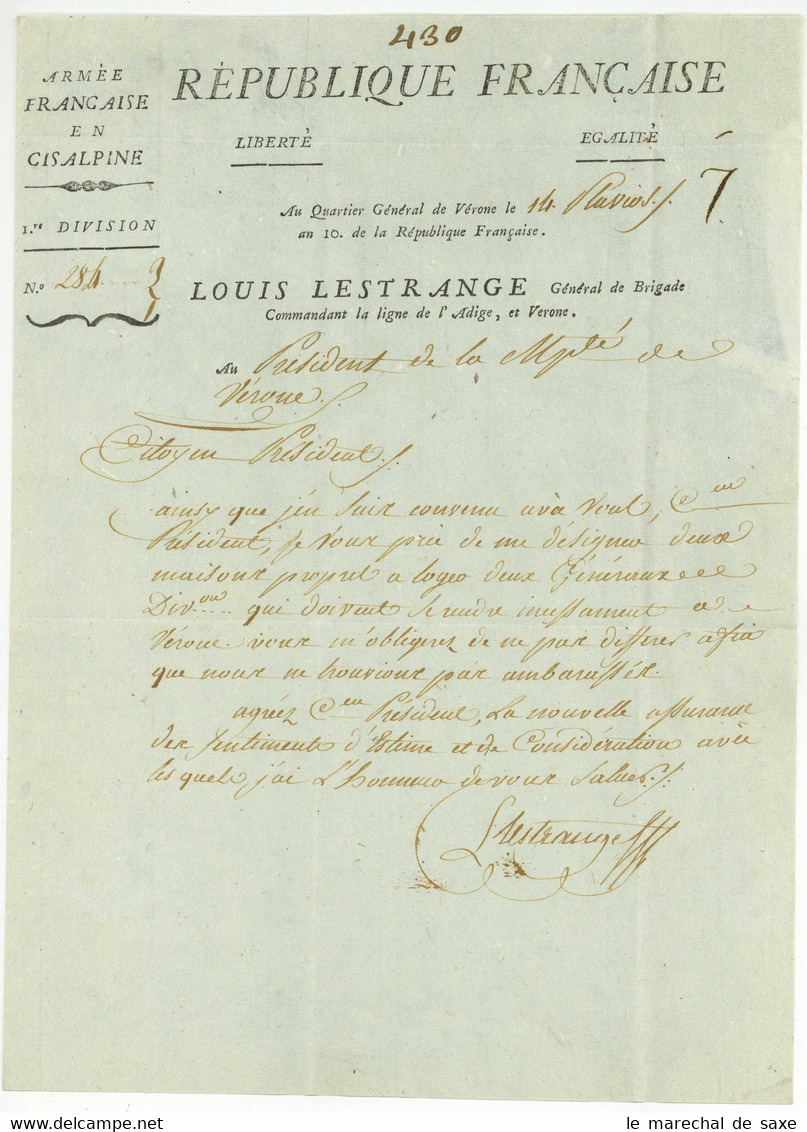 430
ARMÈE
FRANCAISE
EN
CISALPINE
1.re DIVISION
N.o 284
RÈPUBLIQUE FRANÇAISE
LIBERTÈ EGALITÈ
7
Au Quartier Général de Vérone le 14 Pluvios.
an 10. de la République Française.
LOUIS LESTRANGE Général de Brigade
Commandant la ligne de l'Adige, et Verone.
Au Président de la Mpté de
Vérone.
Citoyen Président.
ainsy que j'en suis convenu avec vous, Cen
Président, je vous prie de me désigner deux
maisons propres a loger deux Généraux de
Divon qui doivent se rendre incessament a
Vérone. vous m'obligerez de ne pas differer afin
que nous ne trouvions pas ambarassés.
agréez Cen Président, la nouvelle assurance
des sentiments d'Estime et de Considération avec
les quels j'ai l'honneur de vous saluer.
Lestrange
le marechal de saxe